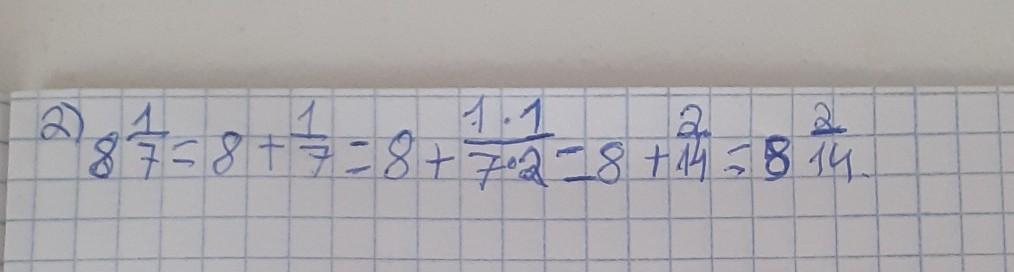 2) 8 1/7 = 8 + 1/7 = 8 + 1·1/7·2 = 8 + 2/14 = 8 2/14.